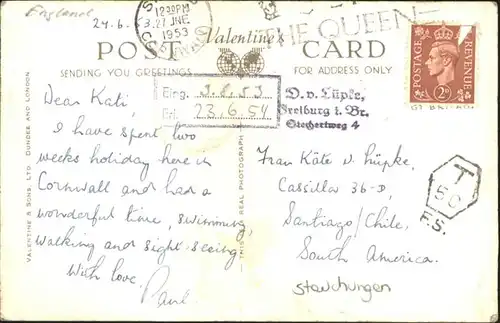 England
24.6.
12 30PM
27 JNE
1953
THE QUEEN
Valentine's
POST CARD
SENDING YOU GREETINGS
FOR ADDRESS ONLY
POSTAGE REVENUE
2D
Eing. 3.8.53
Erl. 23.6.54
D.v. Lüpke,
Freiburg i. Br.
Stechertweg 4
Dear Kati,
I have spent two
weeks holiday here in
Cornwall and had a
wonderful time, swimming,
walking and sight-seeing.
With love,
Paul
VALENTINE & SONS, LTD. DUNDEE AND LONDON
THIS IS A REAL PHOTOGRAPH
Frau Käte v. Lüpke,
Cassilla 36-D,
Santiago/Chile,
South America.
T
50
F.S.